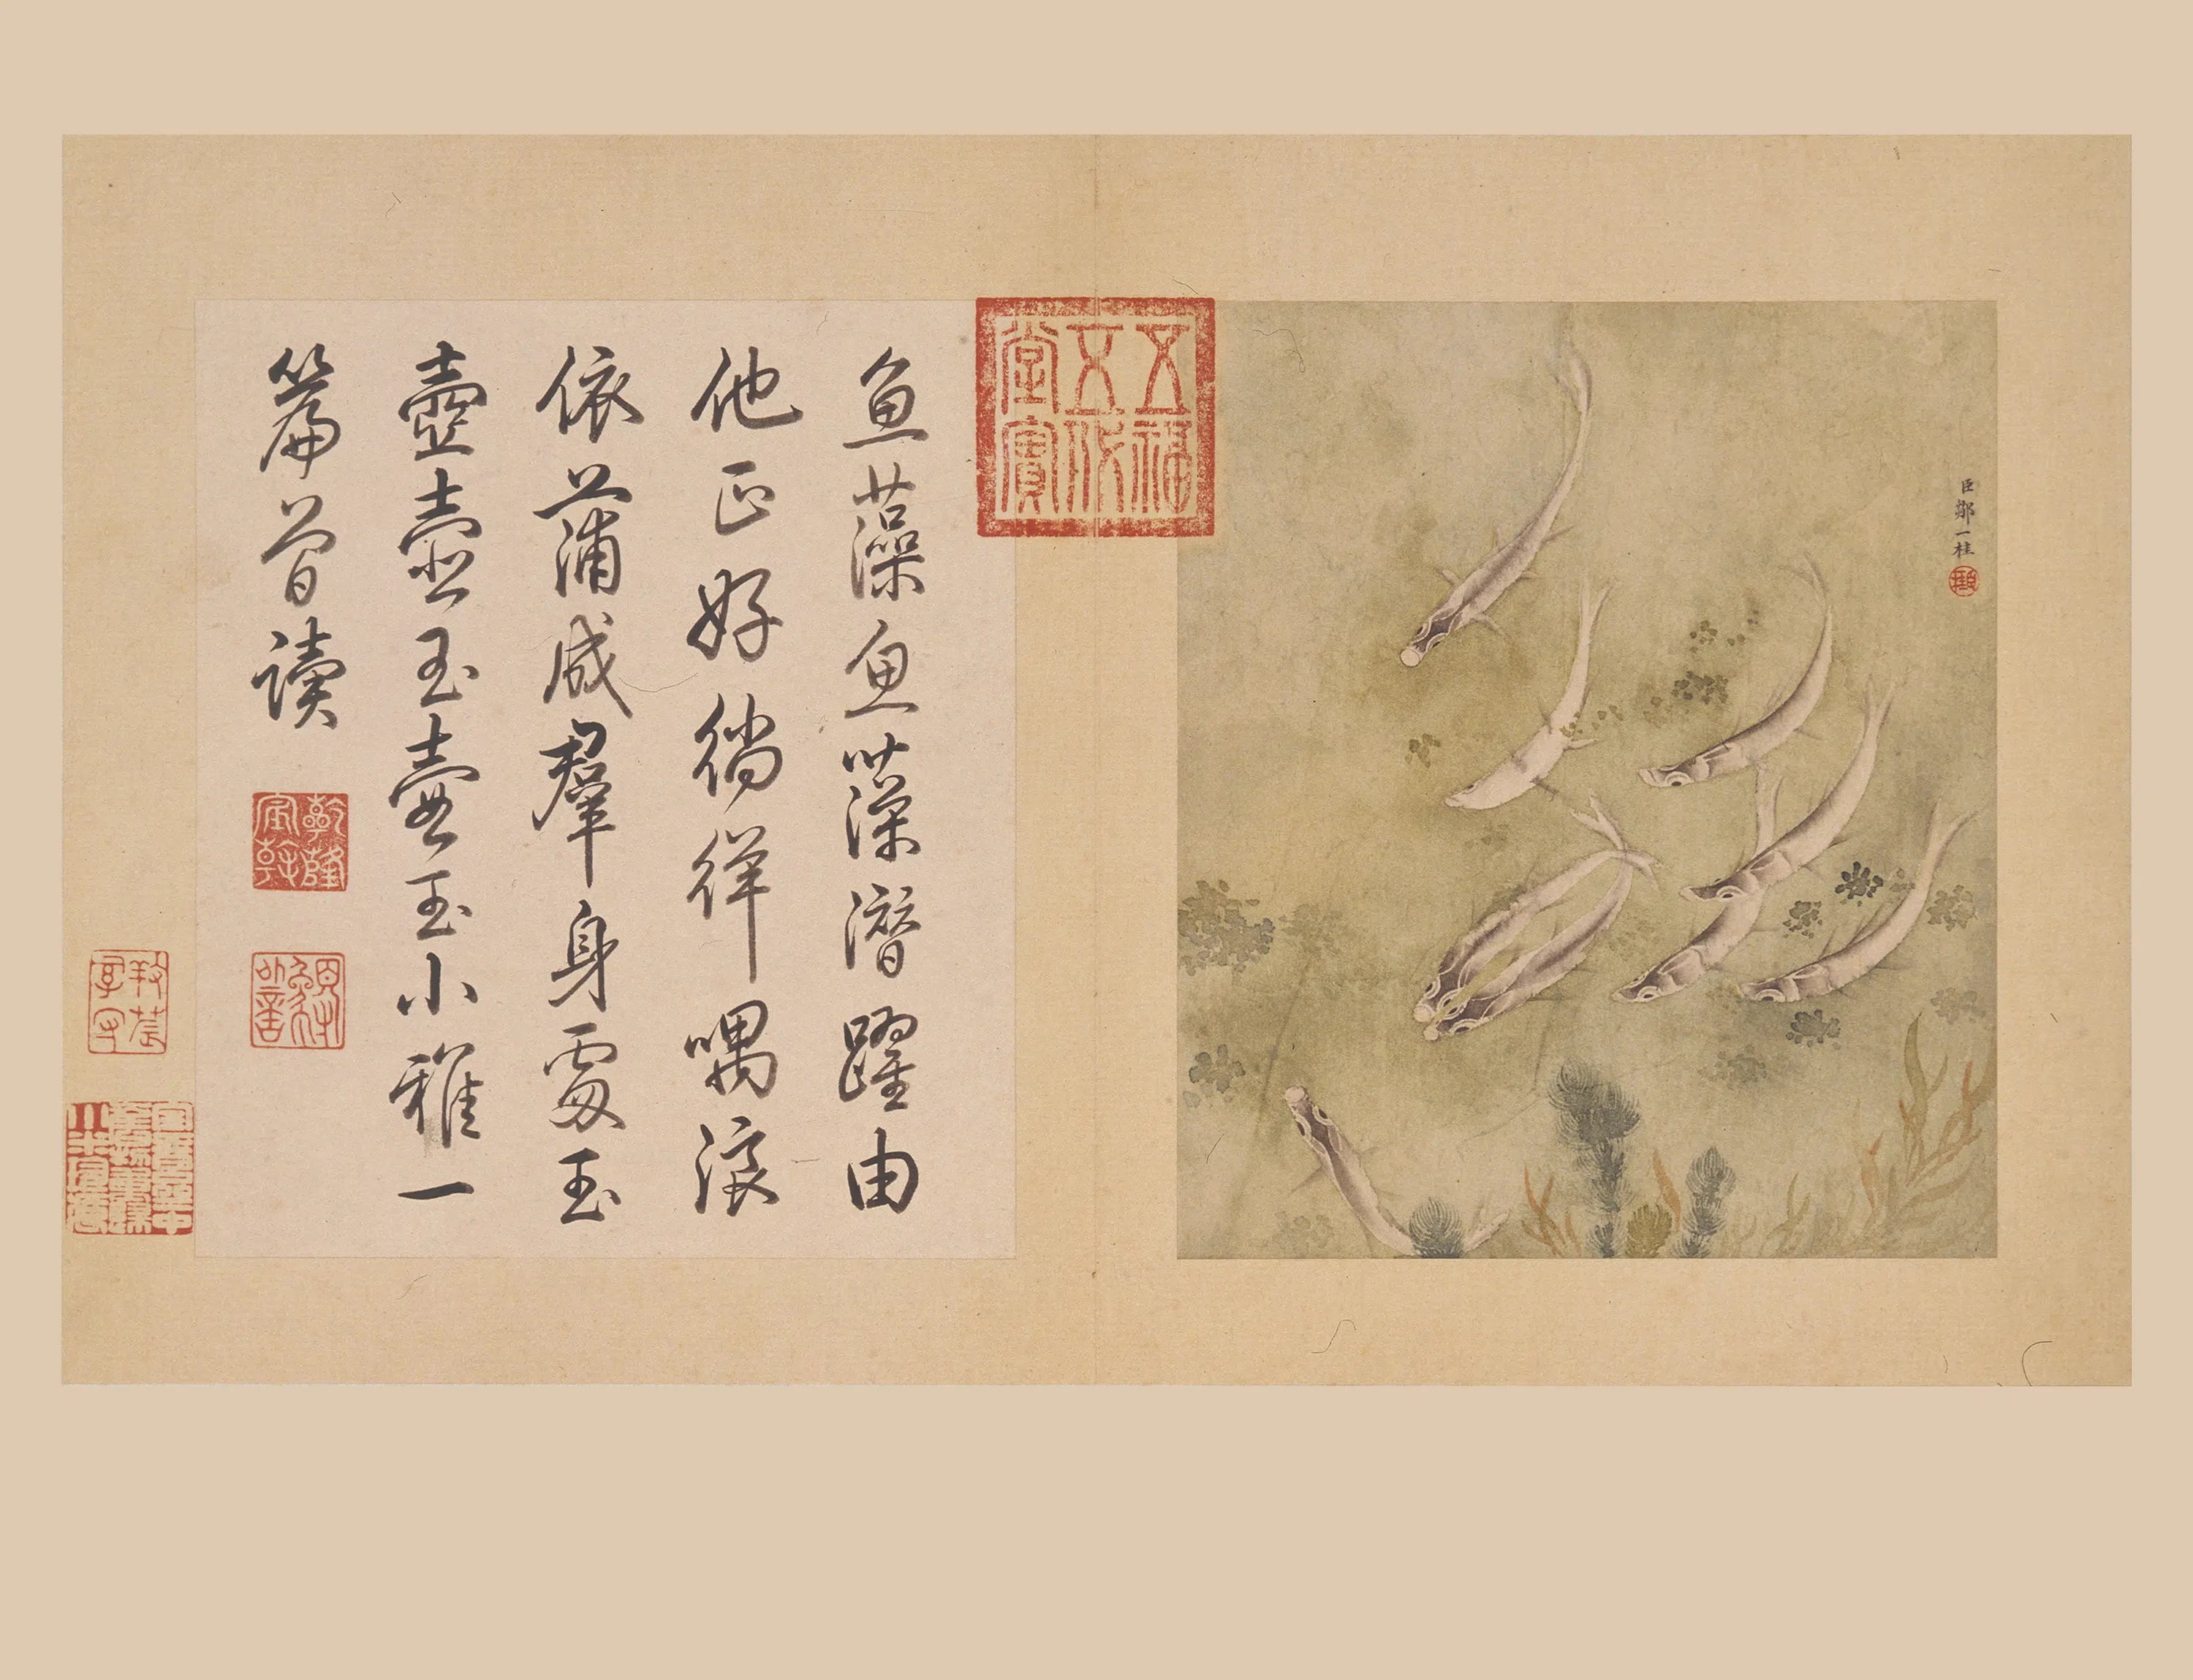 臣鄒一桂
五福
五代
堂寶
魚藻魚藻潛躍由
他正好徜徉喁浪
依蒲咸羣身處玉
壺壺玉壺玉小雅一
篇曾讀
乾隆
宸翰